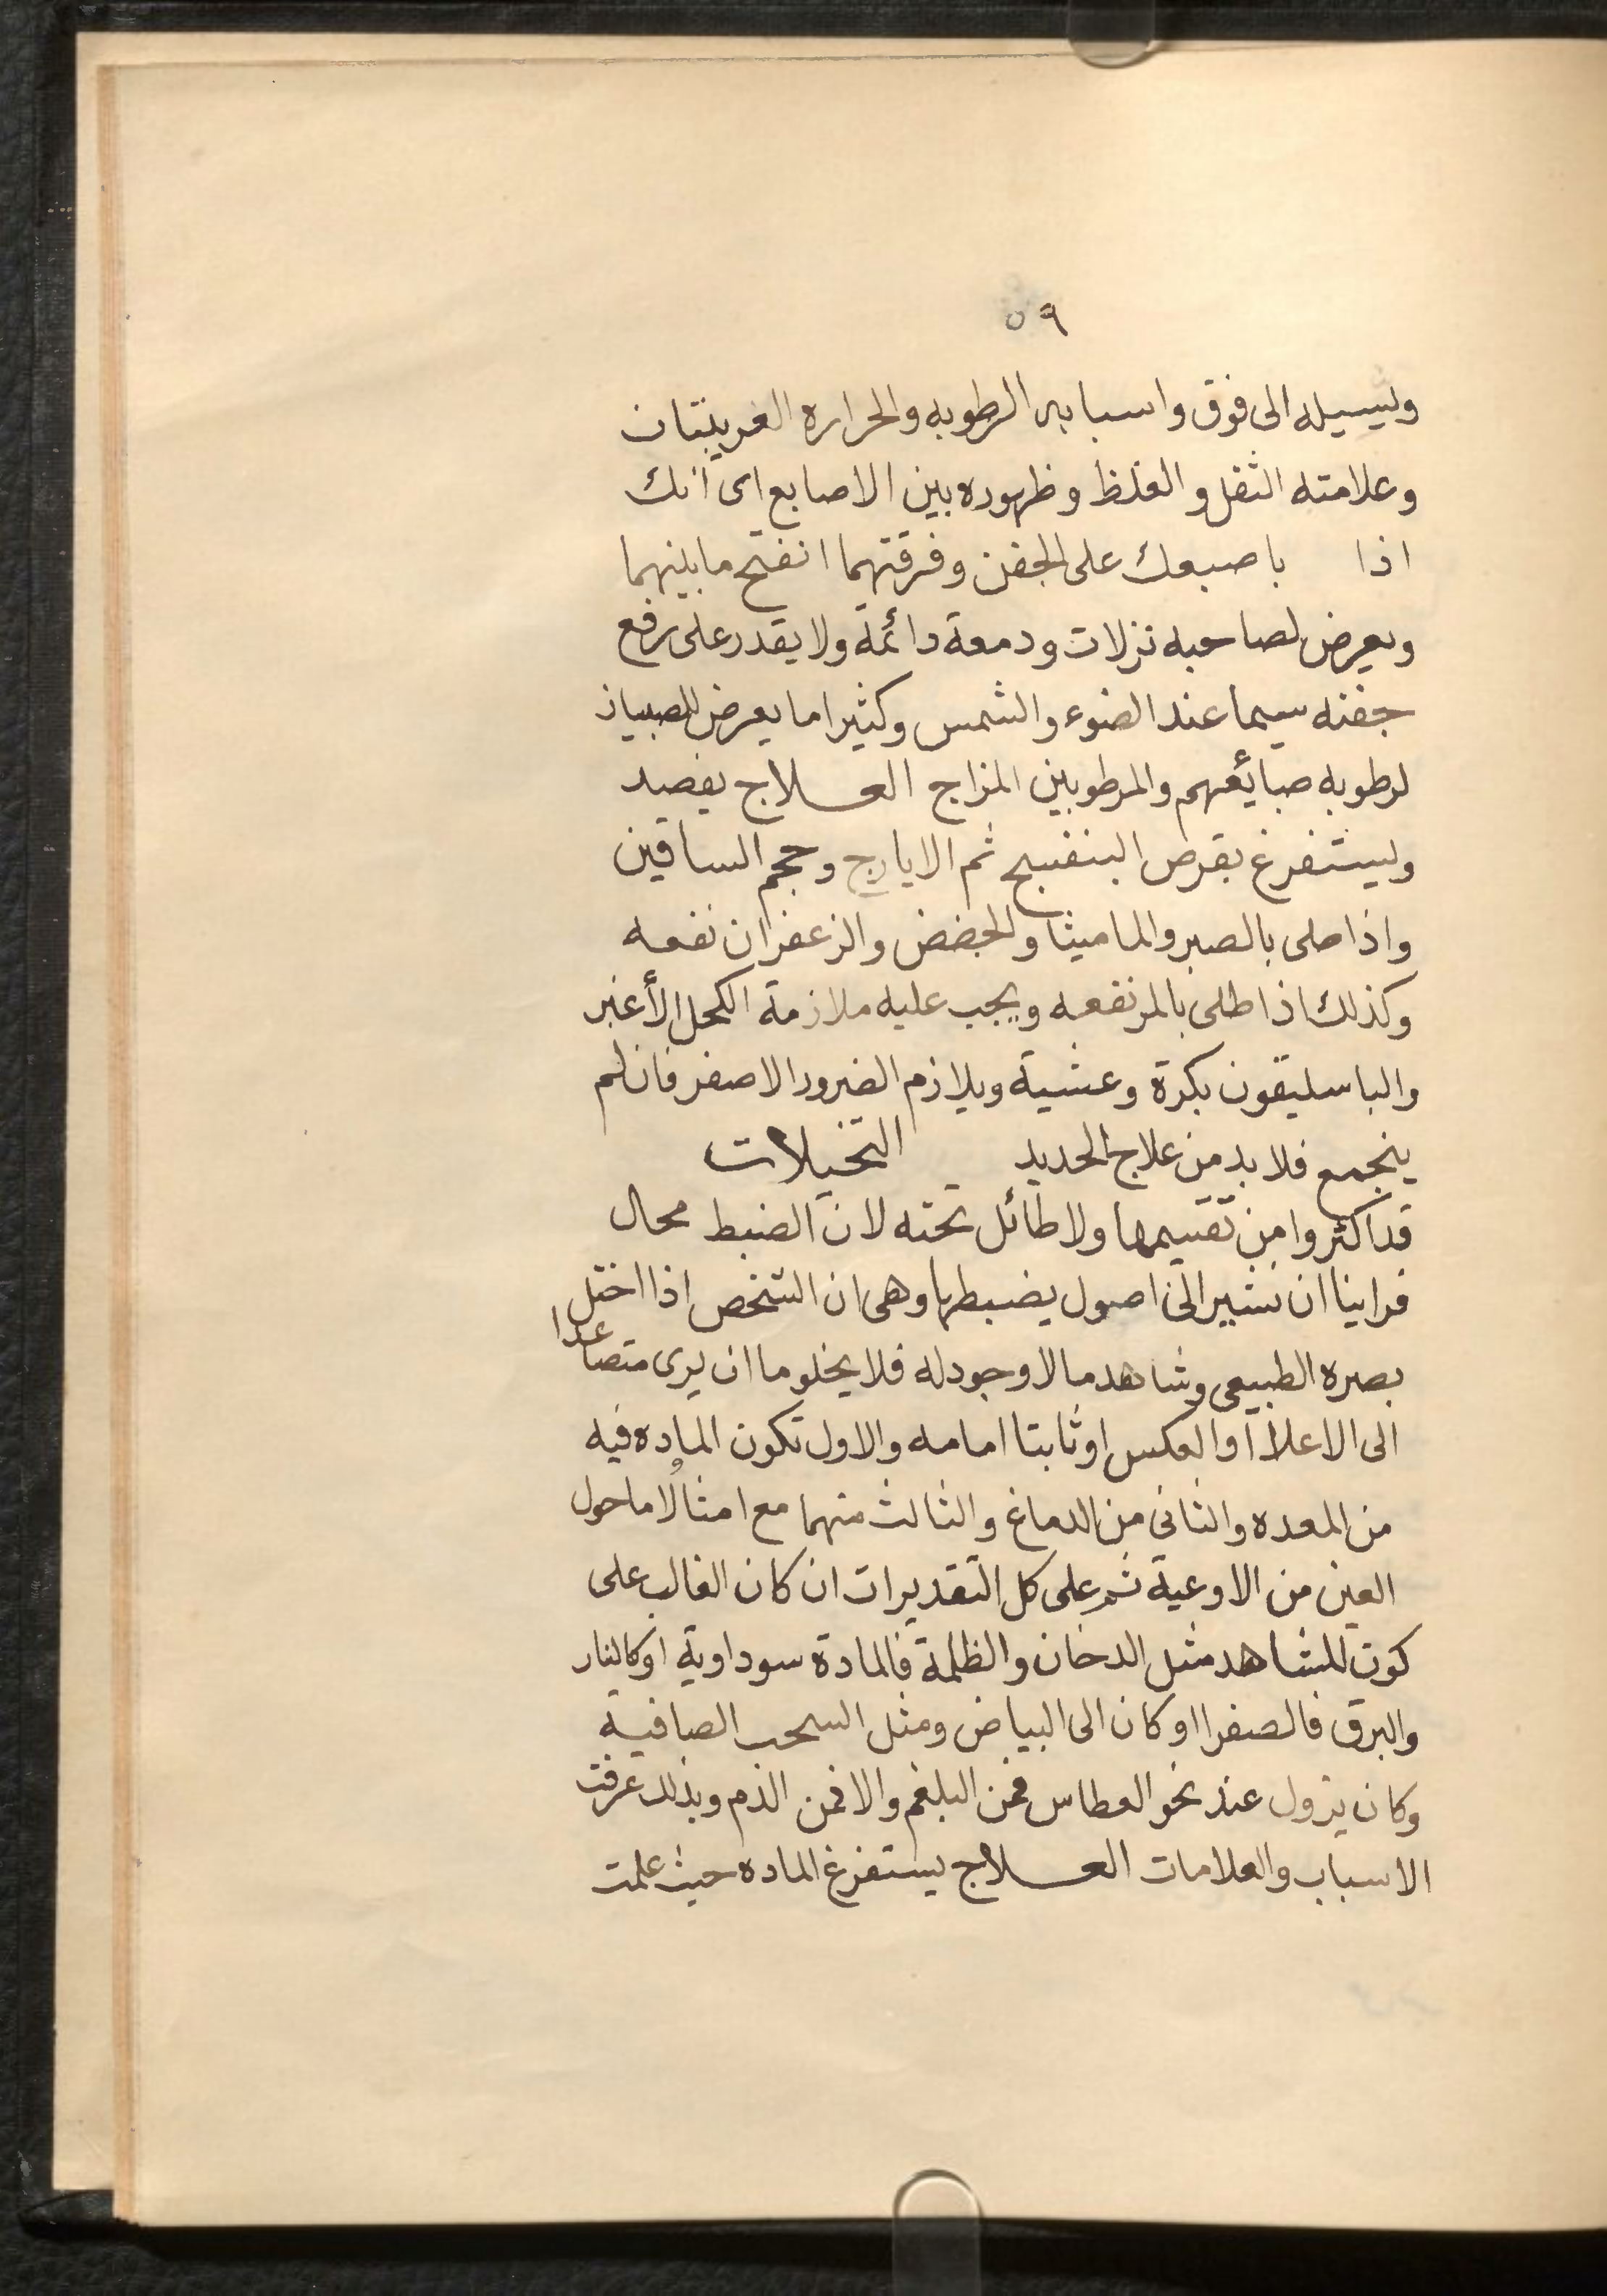 ٥٩
وليسيله الى فوق واسبابه الرطوبه والحراره الغريبتان
وعلامته الثقل والغلظ وظهوره بين الاصابع اى انك
اذا باصبعك على الجفن وفرقتهما انفتح مابينهما
ويعرض لصاحبه نزلات ودمعة دائمة ولا يقدر على رفع
جفنه سيما عند الضوء والشمس وكثيرا ما يعرض للصبيان
لرطوبه صبائعهم والمرطوبين المزاج العــلاج يفصد
وليستفرغ بقرص البنفسج ثم الايارج وحجم الساقين
واذا طلى بالصبر والماميثا والحضض والزعفران نفعه
وكذلك اذا طلى بالمر نفعه ويجب عليه ملازمة الكحل الأغبر
والباسليقون بكرة وعشية ويلازم الضرور الاصفر فان لم
ينجمع فلا بد من علاج الحديد التخيلات
قد اكثروا من تقسيمها ولا طائل تحته لان الضبط محال
فراينا ان نشير الى اصول يضبطها وهى ان الشخص اذا اختل
بصره الطبيعى وشاهد مالا وجود له فلا يخلو ما ان يرى متصاعدا
الى الاعلا أو العكس او ثابتا امامه والاول تكون الماده فيه
من المعده والثانى من الدماغ والثالث منهما مع امتالُا ما حول
العين من الاوعية ثم على كل التقديرات ان كان الغالب على
كون المشاهد مثل الدخان والظلمة فالمادة سوداوية او كالنار
والبرق فالصفرا او كان الى البياض ومثل السحب الصافية
وكان يزول عند نحو العطاس فمن البلغم والا فمن الدم وبذلك عرفت
الاسباب والعلامات العــلاج يستفرغ الماده حيث علمت